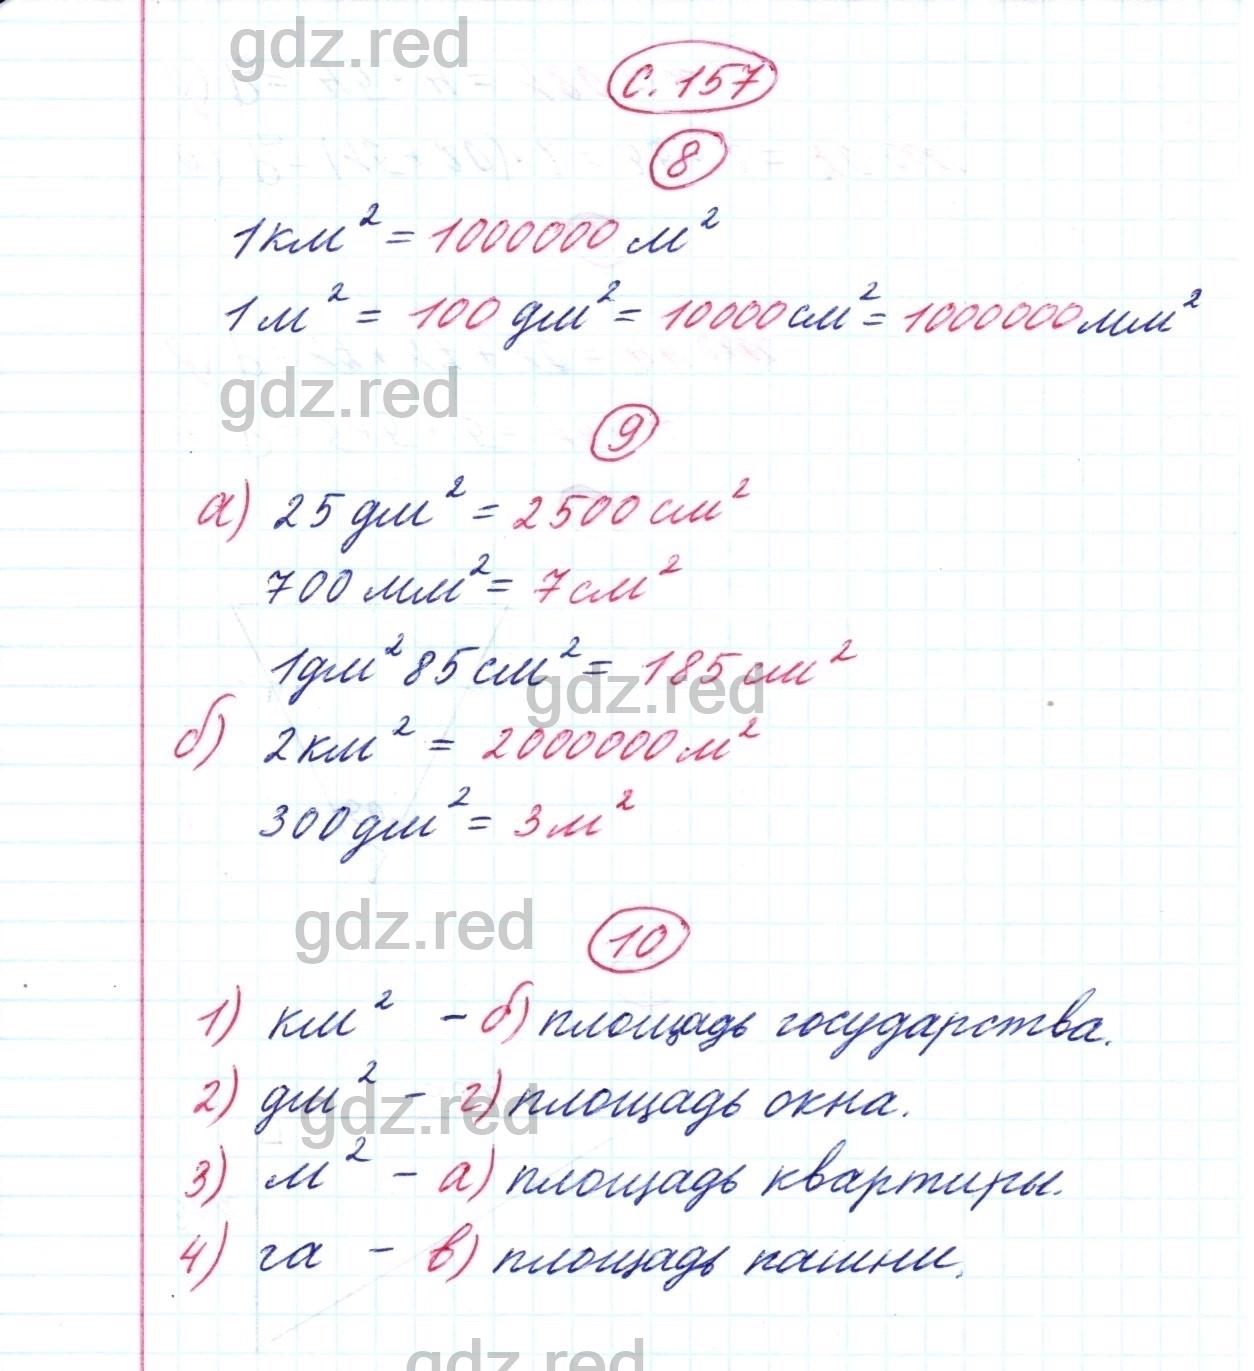 gdz.red
с. 157
8
1 км² = 1000000 м²
1 м² = 100 дм² = 10000 см² = 1000000 мм²
gdz.red
9
а) 25 дм² = 2500 см²
700 мм² = 7 см²
1 дм² 85 см² = 185 см²
gdz.red
б) 2 км² = 2000000 м²
300 дм² = 3 м²
gdz.red
10
1) км² - б) площадь государства.
2) дм² - г) площадь окна.
gdz.red
3) м² - а) площадь квартиры.
4) га - в) площадь пашни.
gdz.red